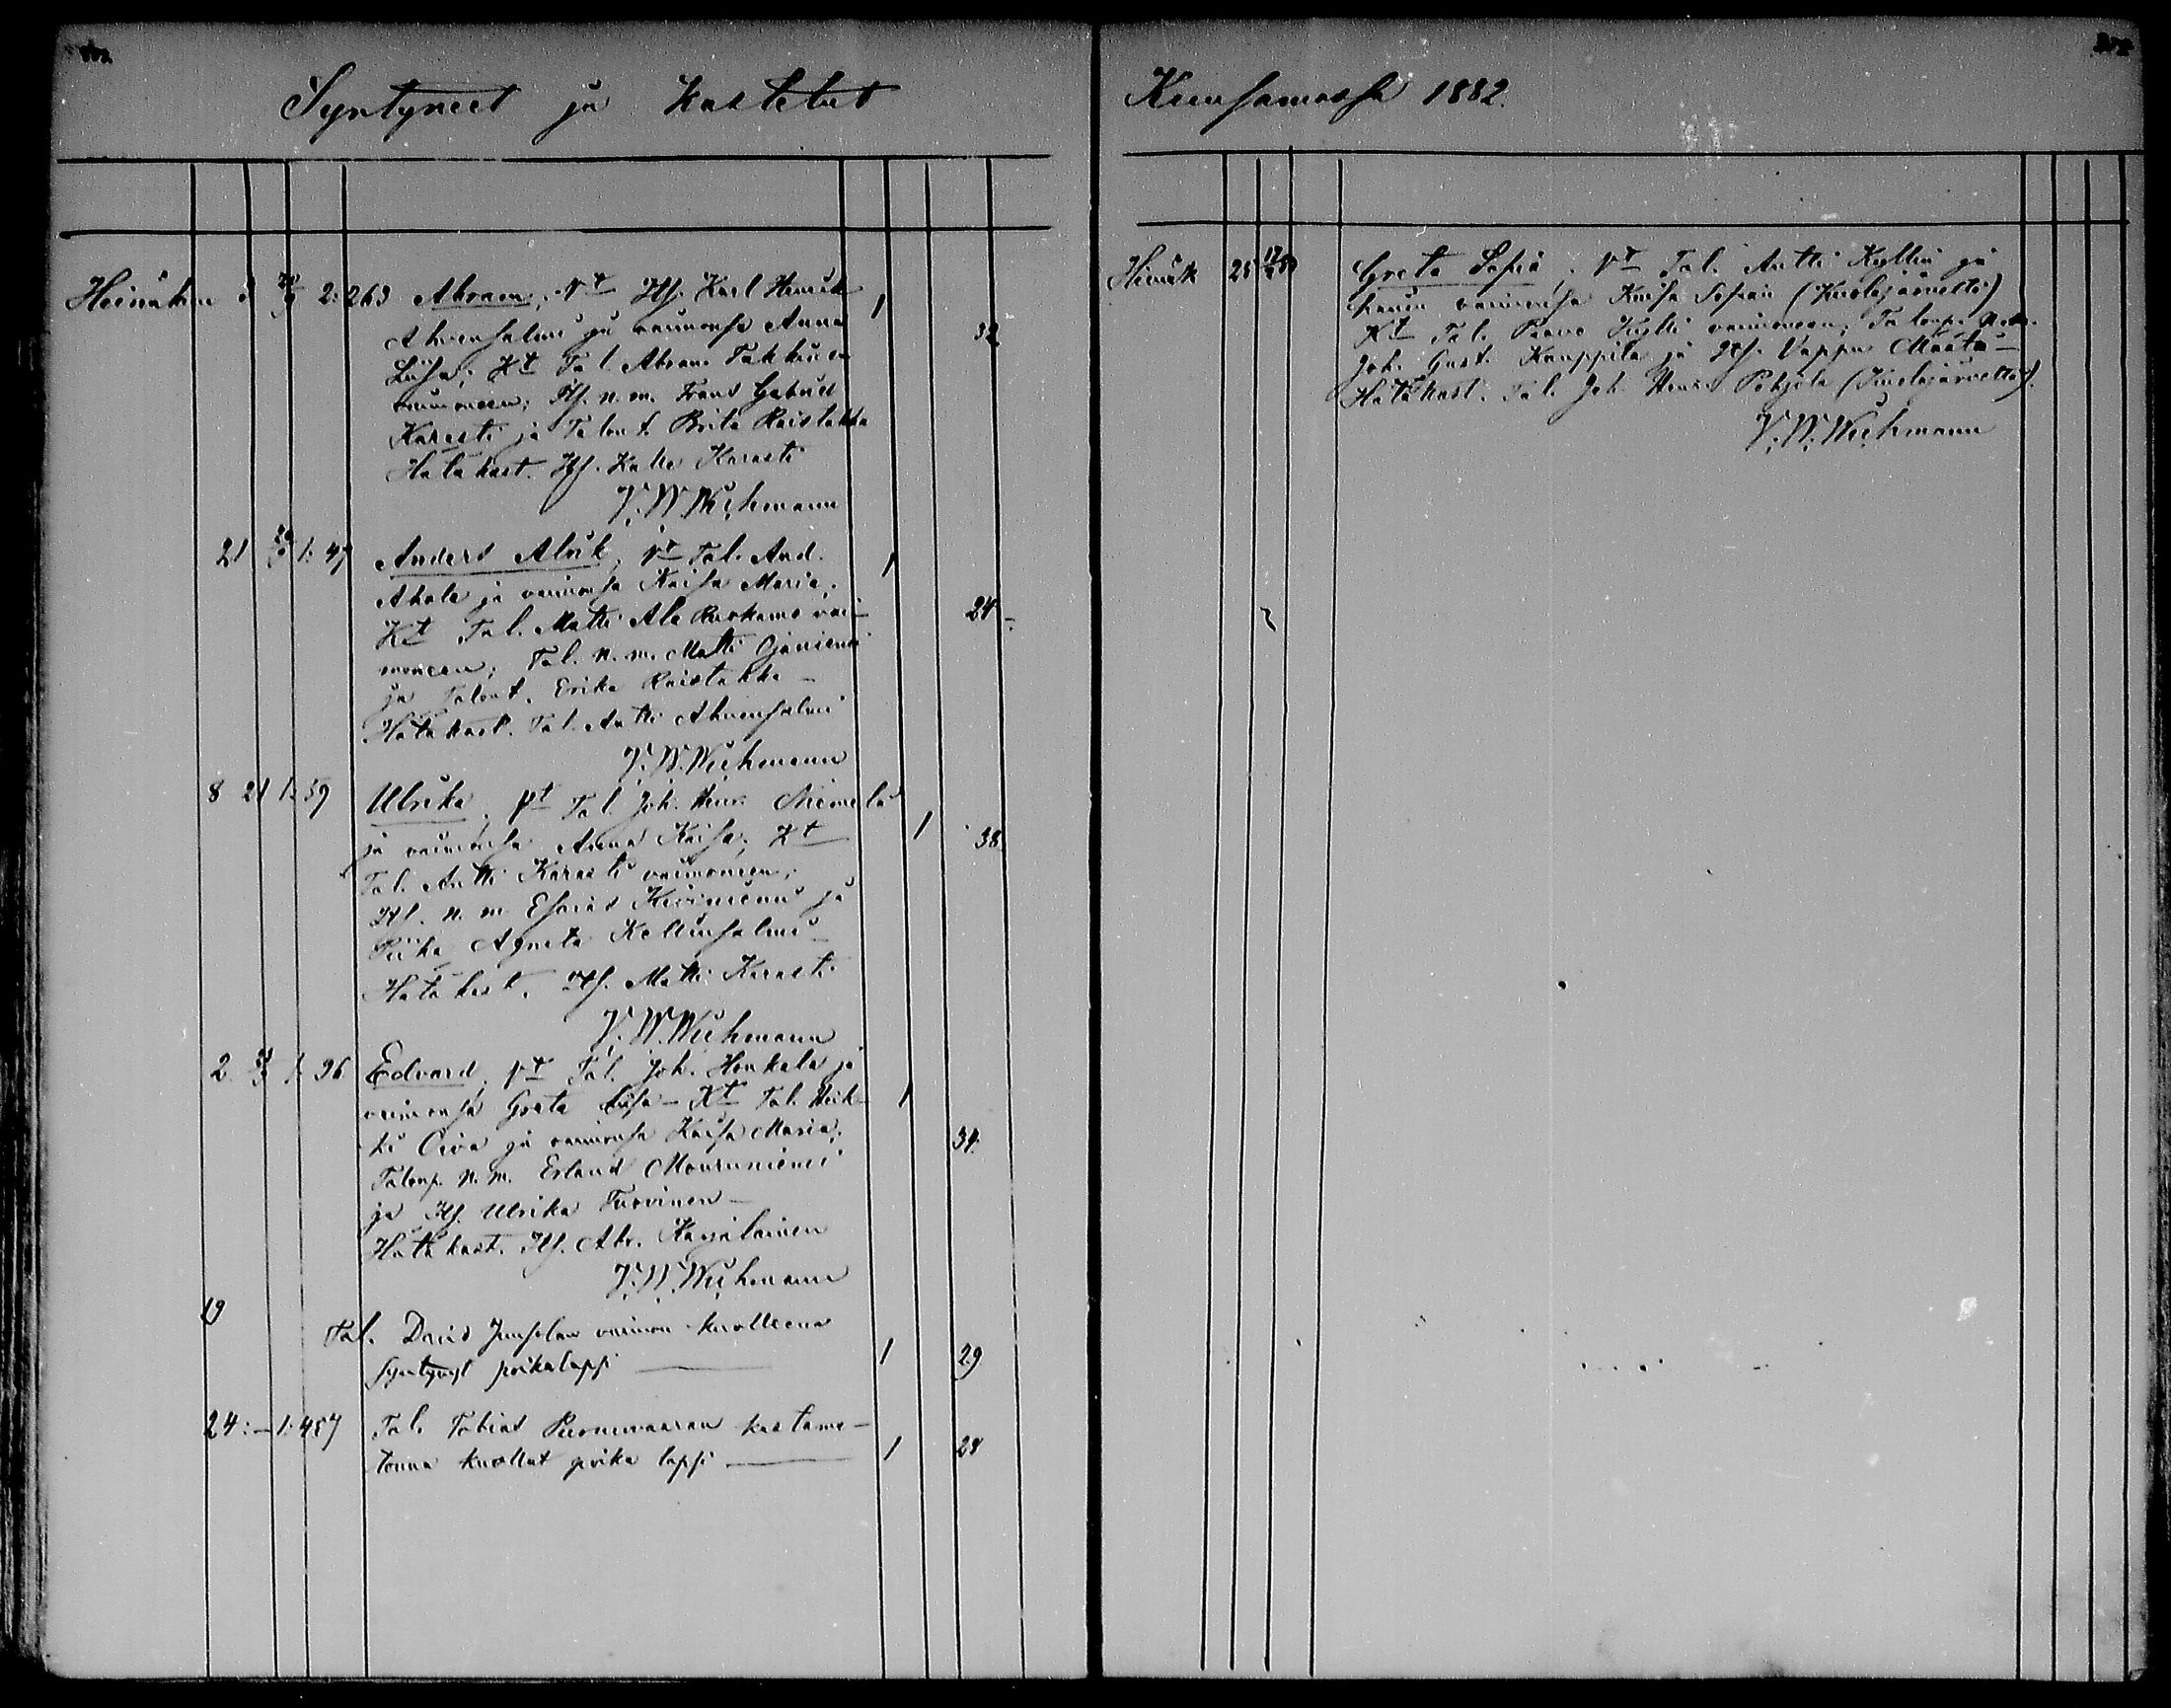 Syntyneet ja Kastetut
Heinäkuu 3 2: 263 Abram; Vt Itf. Karl Henrik 1
Ahvensalmi ja vaimonsa Anna 32
Liisa; Kt Tal. Abram Takkinen
vaimoneen; Itf. n. m. Frans Gabriel
Karasti ja Talont. Brita Raistakka
Hätäkast. Itf. Kalle Karasti
V. W. Wichmann
21 1: 47 Anders Alrik; Vt Tal. And. 1
Ahola ja vaimonsa Kaisa Maria;
Kt Tal. Matti Ala Kurkamo vai- 24
moneen; Tal. n. m. Matti Ojaniemi
ja Talont. Erika Raistakka –
Hätäkast. Tal. Antti Ahvensalmi
V. W. Wichmann
8 21 1: 59 Ulrika; Vt Tal. Joh. Henr. Niemelä
ja vaimonsa Anna Kaisa; Kt 1 38
Tal. Antti Karasti vaimoneen;
Itf. n. m. Esaias Kiviniemi ja
Piika Agneta Kallunsalmi –
Hätäkast. Itf. Matti Karasti
V. W. Wichmann
2 1: 96 Edvard; Vt Tal. Joh. Honkala ja
vaimonsa Greta Liisa – Kt Tal. Heik- 1
ki Oiva ja vaimonsa Kaisa Maria; 34
Talonp. n. m. Erland Mourujärvi
ja Itf. Ulrika Turvinen –
Hätäkast. Itf. Abr. Karjalainen
V. W. Wichmann
19 Tal. David vaimon kuolleena
syntynyt poikalapsi 1 29
24: – 1: 487 Tal. Tobias kastama-
tonna kuollut poika lapsi 1 28
Kuusamossa 1882.
Heinäk 25 Greta Sofia; Vt Tal. Antti Kyllin ja
hänen vaimonsa Kaisa Sofian (Kuolajärveltä)
Kt Tal. Paavo Kylli vaimoneen; Talonp. n. m.
Joh. Gust. Kauppila ja Itf. Vappu Määttä –
Hätäkast. Tal. Joh. Henr. Pohjola (Kuolajärveltä).
V. W. Wichmann